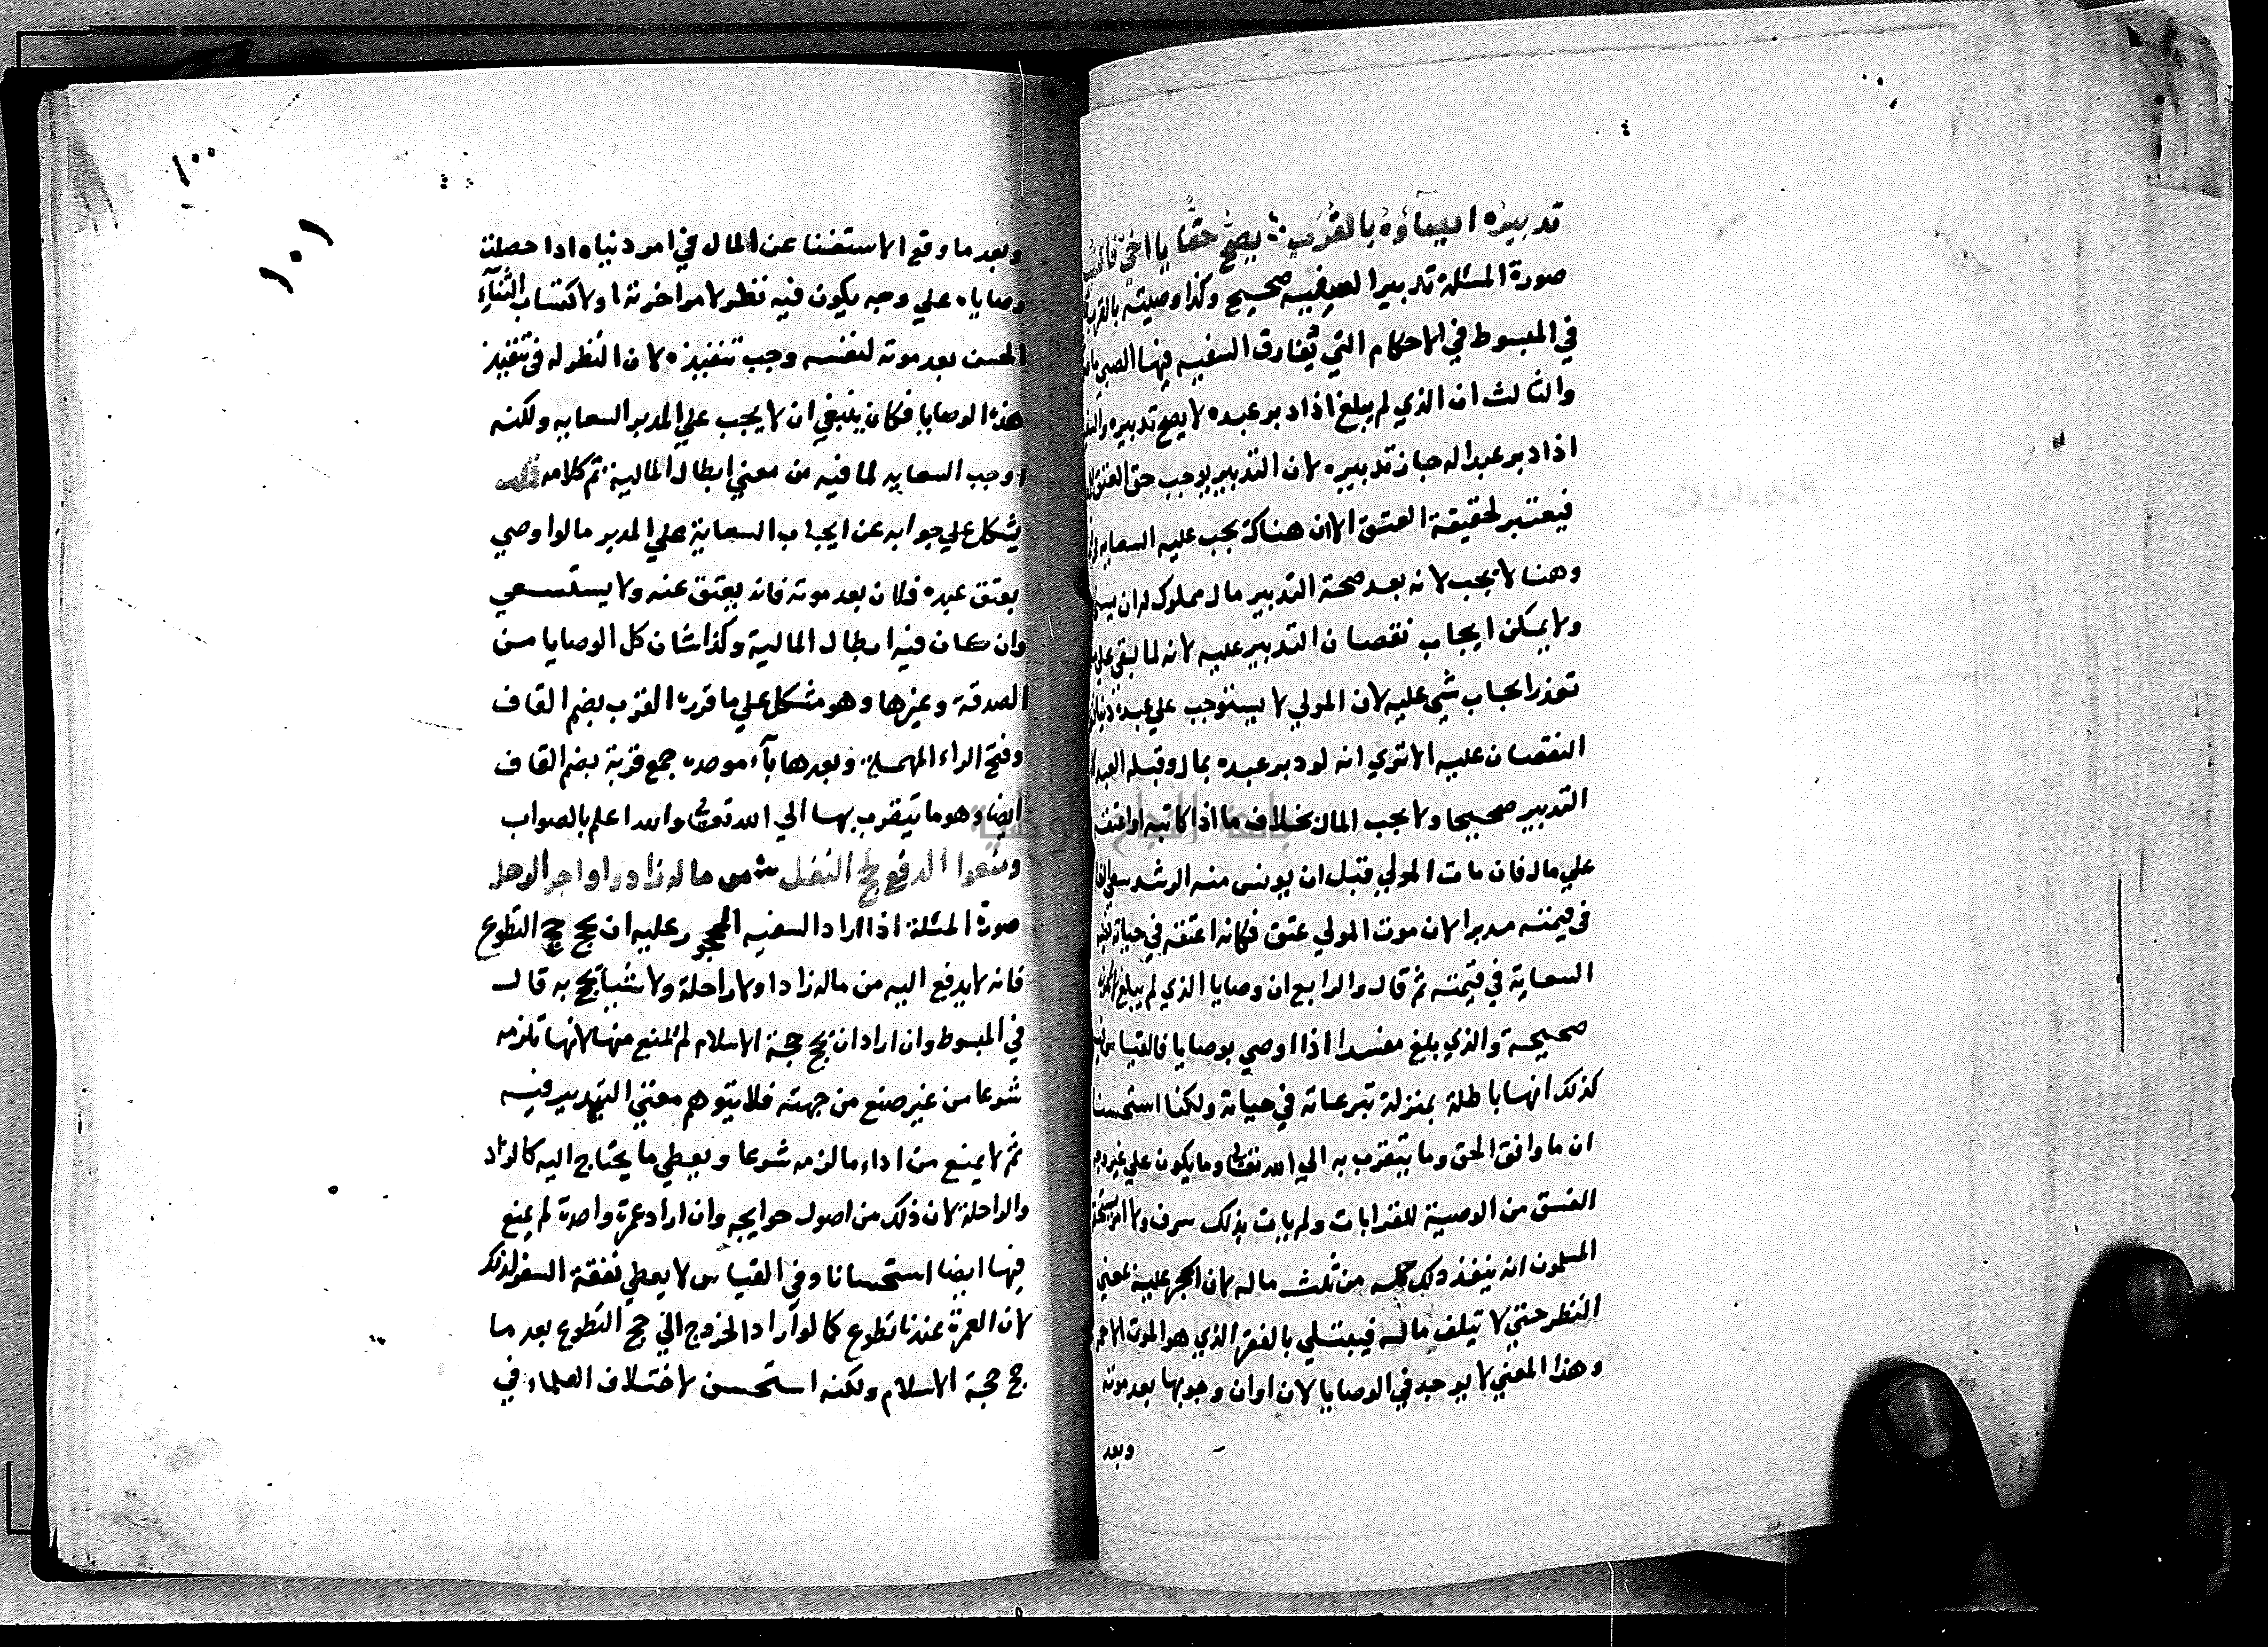 تدبيره ايصآؤه بالقرب يصح حقا يا اخي
صورة المسئلة تدبير السفيه صحيح وكذا وصيته بالقرب
في المبسوط في الاحكام التي تفارق السفيه فيها الصبي
والثالث ان الذي لم يبلغ اذا دبر عبده لا يصح تدبيره
اذا دبر عبدا له جاز تدبيره لان التدبير يوجب حق العتق
فيعتبر لحقيقة العتق الا ان هناك يجب عليه السعايه
وهنا لا يجب لانه بعد صحة التدبير مال مملوك له
ولا يمكن ايجاب نقصان التدبير عليه لانه لما بقي علي
تعذر ايجاب شي عليه لان المولي لا يستوجب علي عبده
النقصان عليه الا تري انه لو دبر عبده بمال وقبله العبد
التدبير صحيحا ولا يجب المال بخلاف ما اذا كاتبه او اعتقه
علي مال فان مات المولي قبل ان يونس منه الرشد سعي
في قيمته مدبرا لان موت المولي عتق فكانه اعتقه في حياته
السعاية في قيمته ثم قال والرابع ان وصايا الذي لم يبلغ
صحيحة والذي بلغ مفسدا اذا اوصي بوصايا فالقياس
كذلك انها باطلة بمنزلة تبرعاته في حياته ولكنا استحسنا
ان ما وافق الحق وما يتقرب به الي الله تعالي وما يكون علي غير وجه
الفسق من الوصية للقرابات ولم يات بذلك سرف ولا
المسلمون انه ينفذ ذلك كله من ثلث ماله لان الحجر عليه لمعني
النظر حتي لا يتلف ماله فيبتلي بالفقر الذي هو الموت الاحمر
وهذا المعني لا يوجد في الوصايا لان اوان وجوبها بعد موته
وبعد
١٠٠
١٠١
وبعد ما وقع الاستغنا عن المال في امر دنياه اذا حصلت
وصاياه علي وجه يكون فيه نظر لامر اخرته او لاكتساب الثنآء
الحسن بعد موته لنفسه وجب تنفيذه لان النظر له في تنفيذ
هذه الوصايا فكان ينبغي ان لا يجب علي المدبر السعايه ولكنه
اوجب السعايه لما فيه من معني ابطال المالية تم كلامه
يشكل علي جوابه عن ايجاب السعاية علي المدبر ما لو اوصي
بعتق عبده فلان بعد موته فانه يعتق عنه ولا يستسعي
وان كان فيه ابطال المالية وكذا شان كل الوصايا من
الصدقة وغيرها وهو مشكل علي ما قرره القرب بضم القاف
وفتح الراء المهملة وبعدها بآء موحده جمع قربة بضم القاف
ايضا وهو ما يتقرب بها الي الله تعالي والله اعلم بالصواب
ومنعوا الدفع لحج النفل من ماله زادا واجر الرحل
صورة المسئلة اذا اراد السفيه المحجور عليه ان يحج حج التطوع
فانه لا يدفع اليه من ماله زادا ولا راحلة ولا شيا يحج به قال
في المبسوط وان اراد ان يحج حجة الاسلام لم يمنع منها لانها تلزمه
شرعا من غير صنع من جهته فلا يتوهم معني التبذير فيه
ثم لا يمنع من اداء ما لزمه شرعا ويعطي ما يحتاج اليه كالزاد
والراحلة لان ذلك من اصول حوايجه وان اراد عمرة واحدة لم يمنع
فيها ايضا استحسانا وفي القياس لا يعطي نفقة السفر لذلك
لان العمرة عندنا تطوع كما لو اراد الخروج الي حج التطوع بعد ما
حج حجة الاسلام ولكنه استحسن لاختلاف العلماء في